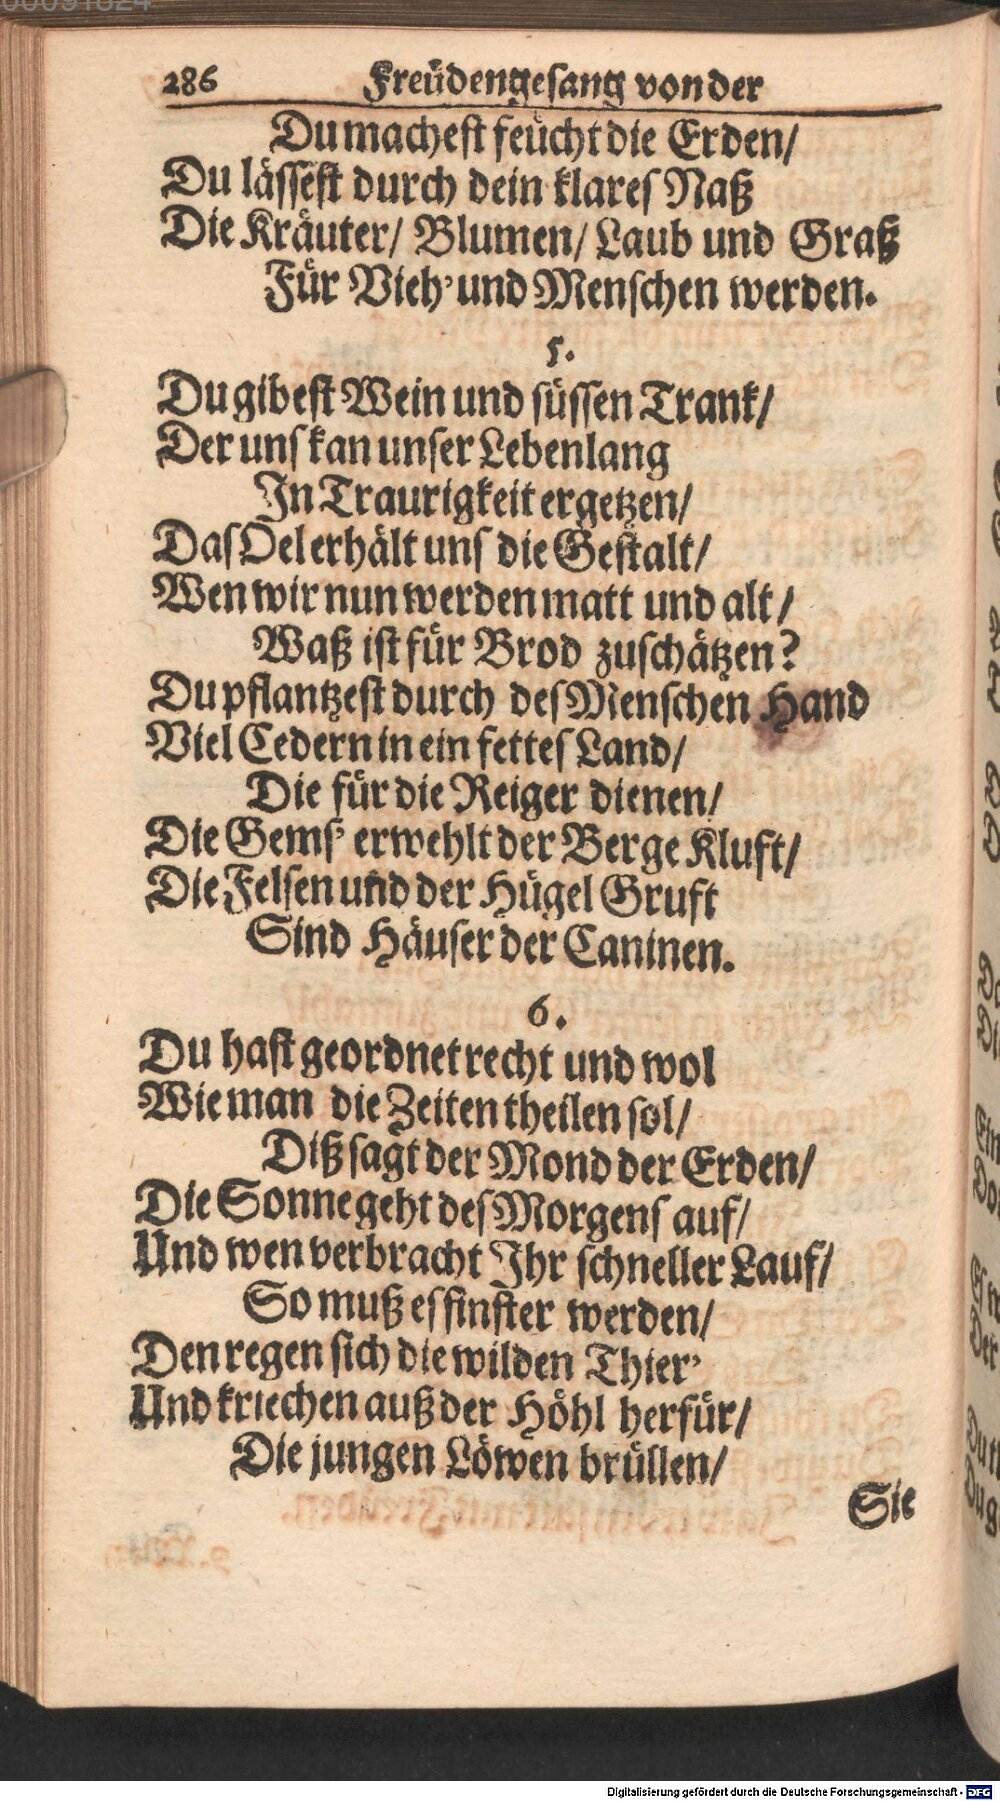 286 Freüdengesang von der
Du machest feücht die Erden/
Du lässest durch dein klares Naß
Die Kräuter/ Blumen/ Laub und Graß
Für Vieh' und Menschen werden.
5.
Du gibest Wein und süssen Trank/
Der uns kan unser Lebenlang
In Traurigkeit ergetzen/
Das Oel erhält uns die Gestalt/
Wen wir nun werden matt und alt/
Waß ist für Brod zuschätzen?
Du pflantzest durch des Menschen Hand
Viel Cedern in ein fettes Land/
Die für die Reiger dienen/
Die Gems' erwehlt der Berge Kluft/
Die Felsen und der Hügel Gruft
Sind Häuser der Caninen.
6.
Du hast geordnet recht und wol
Wie man die Zeiten theilen sol/
Diß sagt der Mond der Erden/
Die Sonne geht des Morgens auf/
Und wen verbracht Ihr schneller Lauf/
So muß es finster werden/
Den regen sich die wilden Thier'
Und kriechen auß der Höhl herfür/
Die jungen Löwen brüllen/
Sie
Digitalisierung gefördert durch die Deutsche Forschungsgemeinschaft - DFG